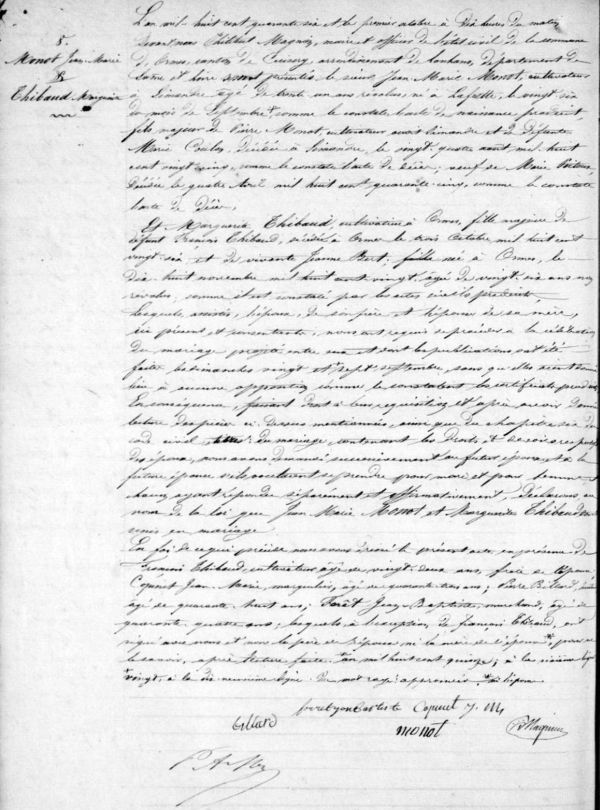 5.
Monot Jean Marie
&
Thibaud Marguerite
L'an mil huit cent quarante six et le premier octobre à dix heures du matin
devant nous Thibert Magnin, maire et officier de l'état civil de la commune
d'Ormes, canton de Cuisery, arrondissement de Louhans, département de
Saône et Loire sont présentés le sieur Jean Marie Monot, cultivateur
à Simandre âgé de trente un ans révolus, né à Lafrette, le vingt six
du mois de Septembre, comme le constate l'acte de naissance produit,
fils majeur de Pierre Monot, cultivateur audit Simandre et de défunte
Marie Coulon, décédée à Simandre, le vingt quatre aout mil huit
cent vingt cinq, comme le constate l'acte de décès; veuf de Marie
décédée le quatre Avril mil huit cent quarante cinq, comme le constate
l'acte de décès.
Et Marguerite Thibaud, cultivatrice à Ormes, fille majeure de
défunt François Thibaud, décédé à Ormes le trois Octobre mil huit cent
vingt six et de vivante Jeanne Bert, née à Ormes, le
dix huit novembre mil huit cent vingt, âgée de vingt six ans non
révolus, comme il est constaté par les actes civils produits.
Lesquels assistés, l'époux, de son père et l'épouse de sa mère,
ici présents et consentants, nous ont requis de procéder à la célébration
du mariage projeté entre eux et dont les publications ont été
faites les dimanches vingt et vingt sept septembre, sans qu'elles aient donné
lieu à aucune opposition comme le constatent les certificats produits.
En conséquence, faisant droit à leur réquisition et après avoir donné
lecture des pièces ci dessus mentionnées, ainsi que du chapitre six du
code civil titre du mariage, contenant les droits et devoirs respectifs
des époux, nous avons demandé successivement au futur époux et à la
future épouse s'ils voulaient se prendre pour mari et pour femme
chacun ayant répondu séparément et affirmativement, déclarons au
nom de la loi que Jean Marie Monot et Marguerite Thibaud sont
unis en mariage.
En foi de ce qui précède nous avons dressé le présent acte, en présence de
François Thibaud, cultivateur âgé de vingt deux ans, frère de l'épouse
Copinet Jean Marie, marguillier, âgé de quarante trois ans; Pierre
âgé de quarante huit ans; Foret Jean Baptiste, marchand, âgé de
quarante quatre ans; lesquels, à l'exception, de françois Thibaud, ont
signé avec nous et non le père de l'époux ni la mère de l'épouse, pour ne
le savoir, après lecture faite. an mil huit cent quinze; à la sixième ligne
vingt, à la dix neuvième ligne. Un mot rayé approuvé.
foret jean batiste Copinet J. M.
monot
Magnin